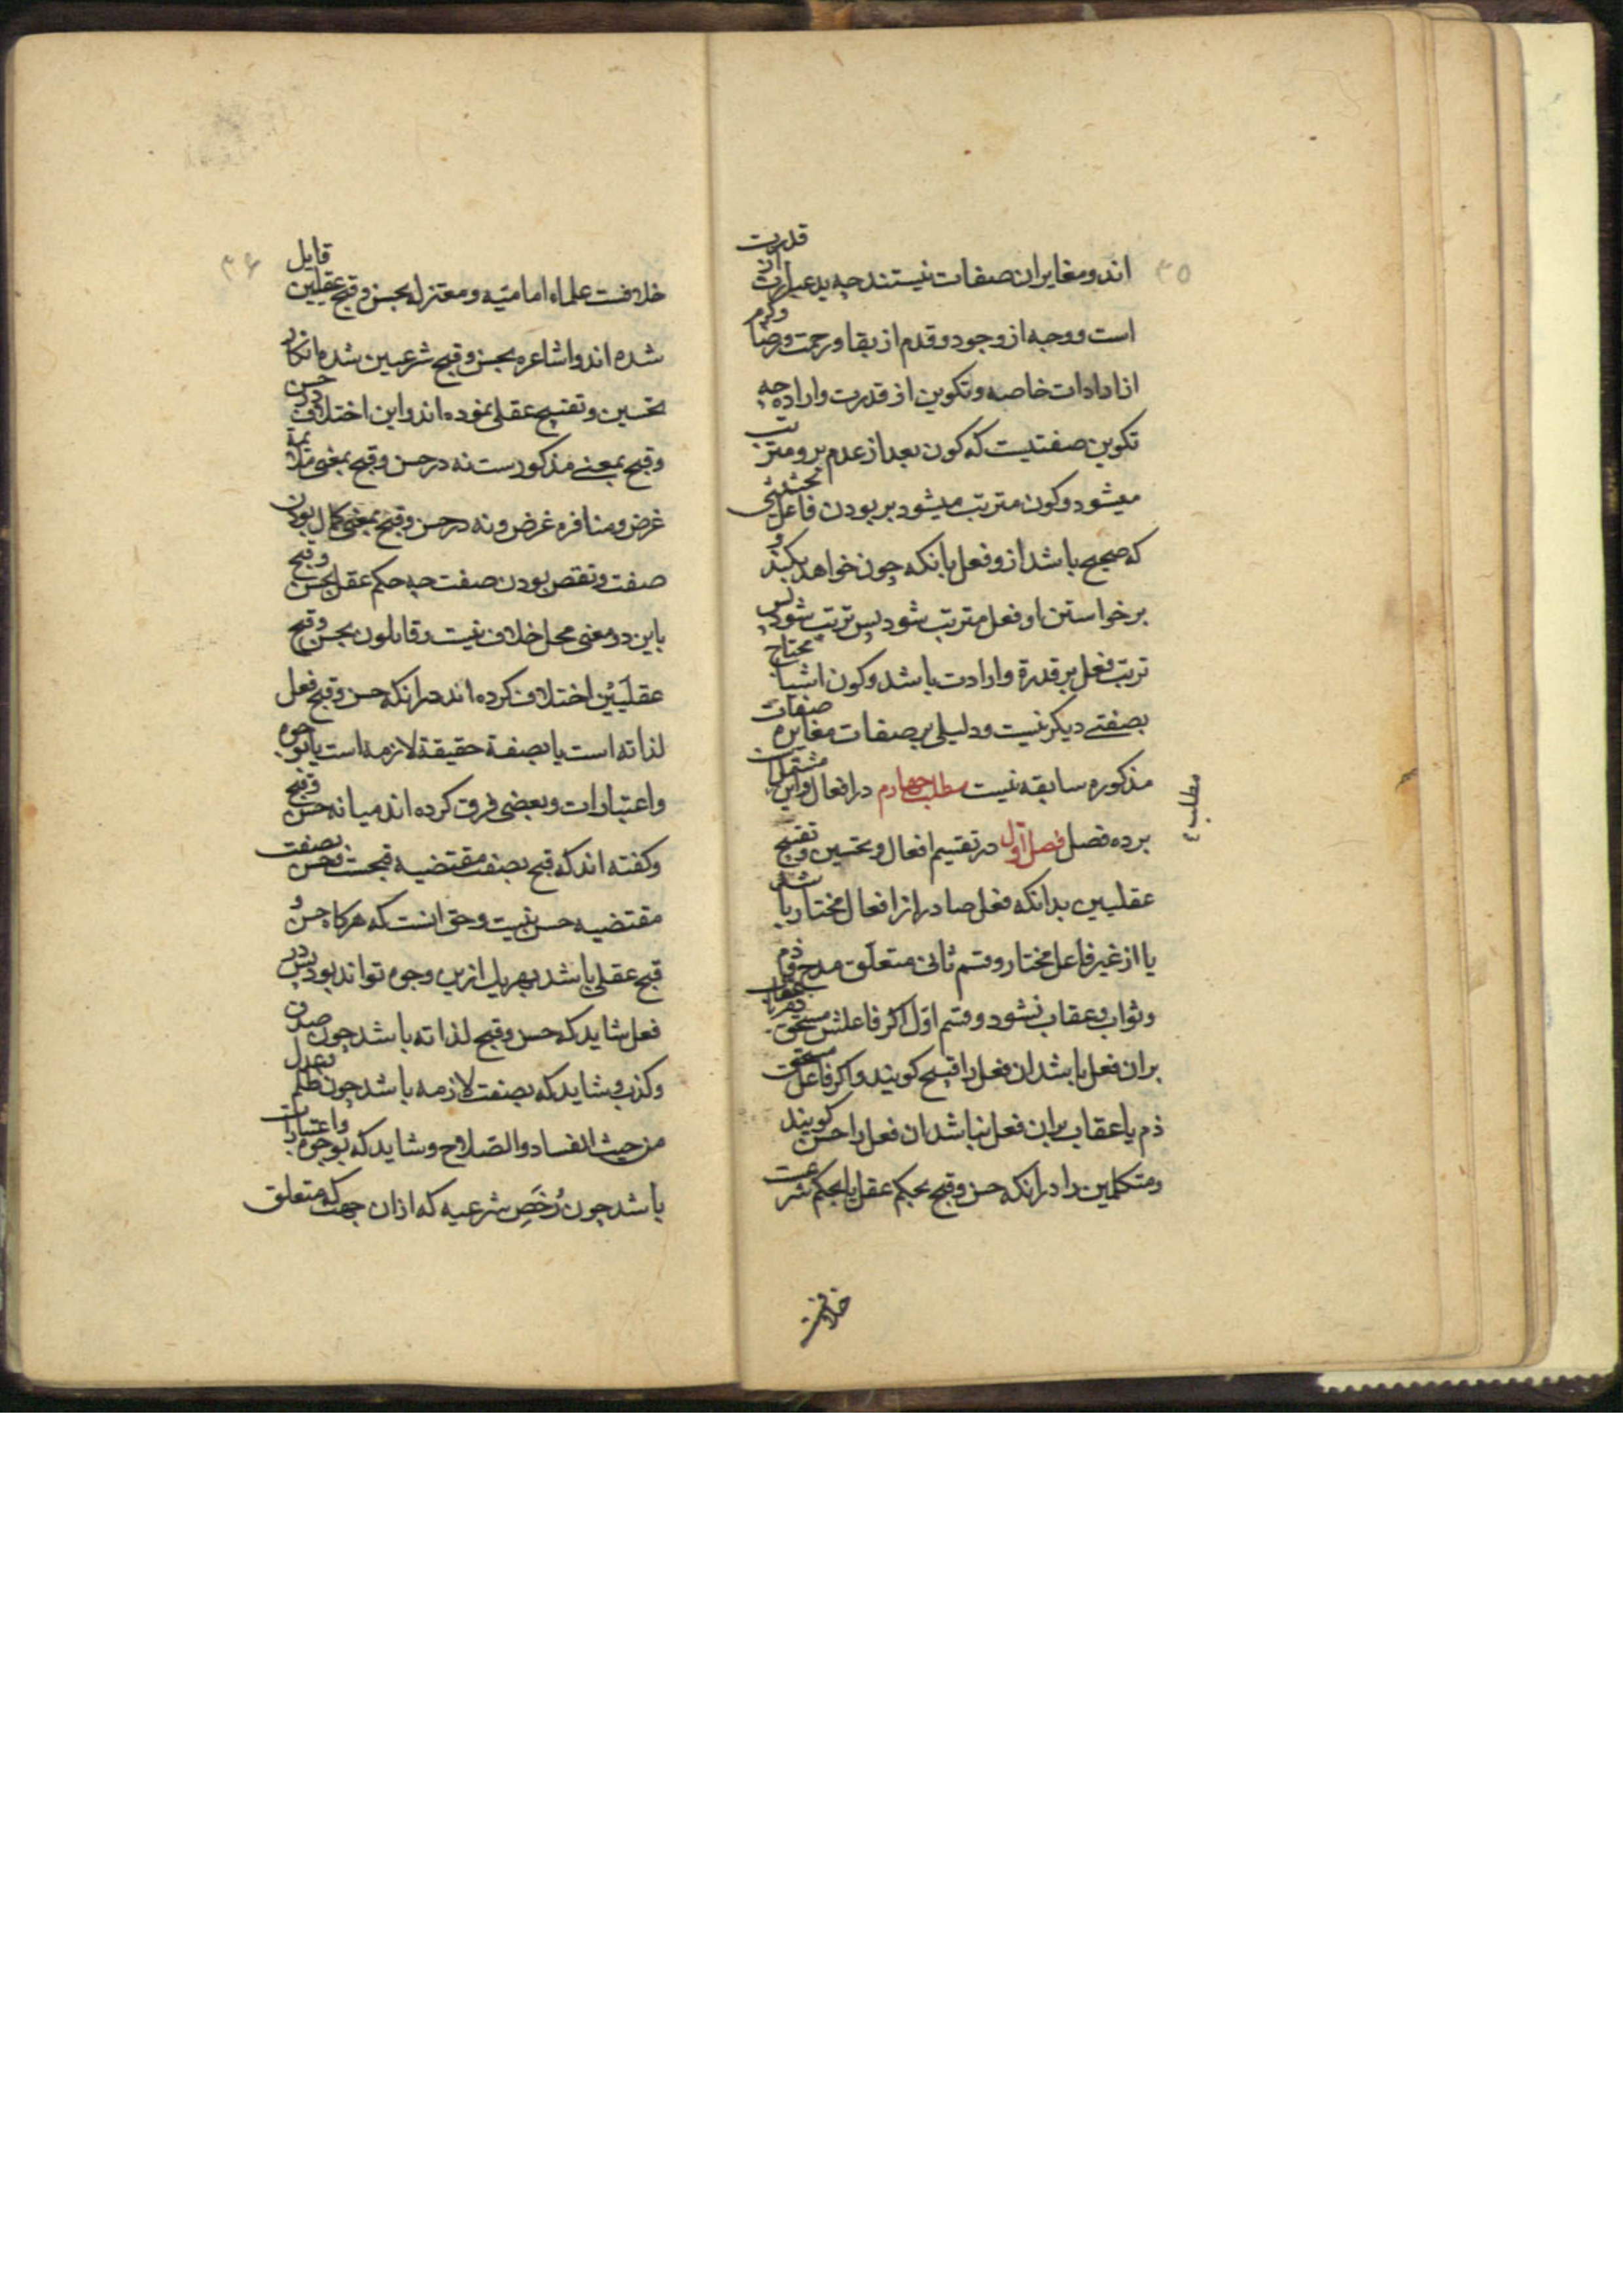 ۳۵
اند و مغایر ان صفات نیستند چه ید عبارت از قدرت
است و وجه از وجود و قدم از بقا و رحمت و رضا و کرم
از ارادات خاصه و تکوین از قدرت و اراده چه
تکوین صفتیست که کون بعد از عدم برو مترتب
میشود و کون مترتب میشود بر بودن فاعل بحیثیتی
که صحیح باشد ازو فعل بانکه چون خواهد بکند و
بر خواستن او فعل مترتب شود پس ترتب شود پس
ترتب فعل بر قدرة و ارادت باشد و کون اشیا محتاج
بصفتے دیکر نیست و دلیلی بر صفات مغایره صفات
مذکوره سابقه نیست مطلب چهارم در افعال و این مشتمل است
مطلب ۴
بر ده فصل فصل اول در تقسیم افعال و تحسین و تقبیح
عقلیین بدانکه فعل صادر از افعال مختار یا باشد
یا از غیر فاعل مختار و قسم ثانی متعلق مدح و ذم
و ثواب و عقاب نشود و قسم اول اکر فاعلش مستحق ذم یا عقاب
بران فعل باشد ان فعل را قبیح کویند و اکر فاعل مستحق
ذم یا عقاب بران فعل نباشد ان فعل را حسن کویند
و متکلمین را در انکه حسن و قبح بحکم عقل یا بحکم شرعست
خلافست
۳۶
خلافست علماء امامیّه و معتزله بحسن و قبح عقلیین قایل
شده اند و اشاعره بحسن و قبح شرعیین شده انکار
تحسین و تقبیح عقلی نموده اند و این اختلاف در حسن
و قبح بمعنے مذکورست نه در حسن و قبح بمعنی ملائمة
غرض و منافره غرض و نه در حسن و قبح بمعنی کمال بودن
صفت و نقص بودن صفت چه حکم عقل بحسن و قبح
باین دو معنی محل خلاف نیست و قایلون بحسن و قبح
عقلیین اختلاف کرده اند در انکه حسن و قبح فعل
لذاته است یا بصفة حقیقة لازمه است یا بوجوه
و اعتبارات و بعضی فرق کرده اند میانه حسن و قبح
و کفته اند که قبح بصفت مقتضیه قبحست و حسن بصفت
مقتضیه حسن نیست و حق انست که هرکاه حسن و
قبح عقلی باشد بهریک ازین وجوه تواند بود پس در
فعل شاید که حسن و قبح لذاته باشد چون صدق
و کذب و شاید که بصفت لازمه باشد چون ظلم و عدل
من حیث الفساد و الصّلاح و شاید که بوجوه و اعتبارات
باشد چون رُخَصِ شرعیه که ازان جهت که متعلق